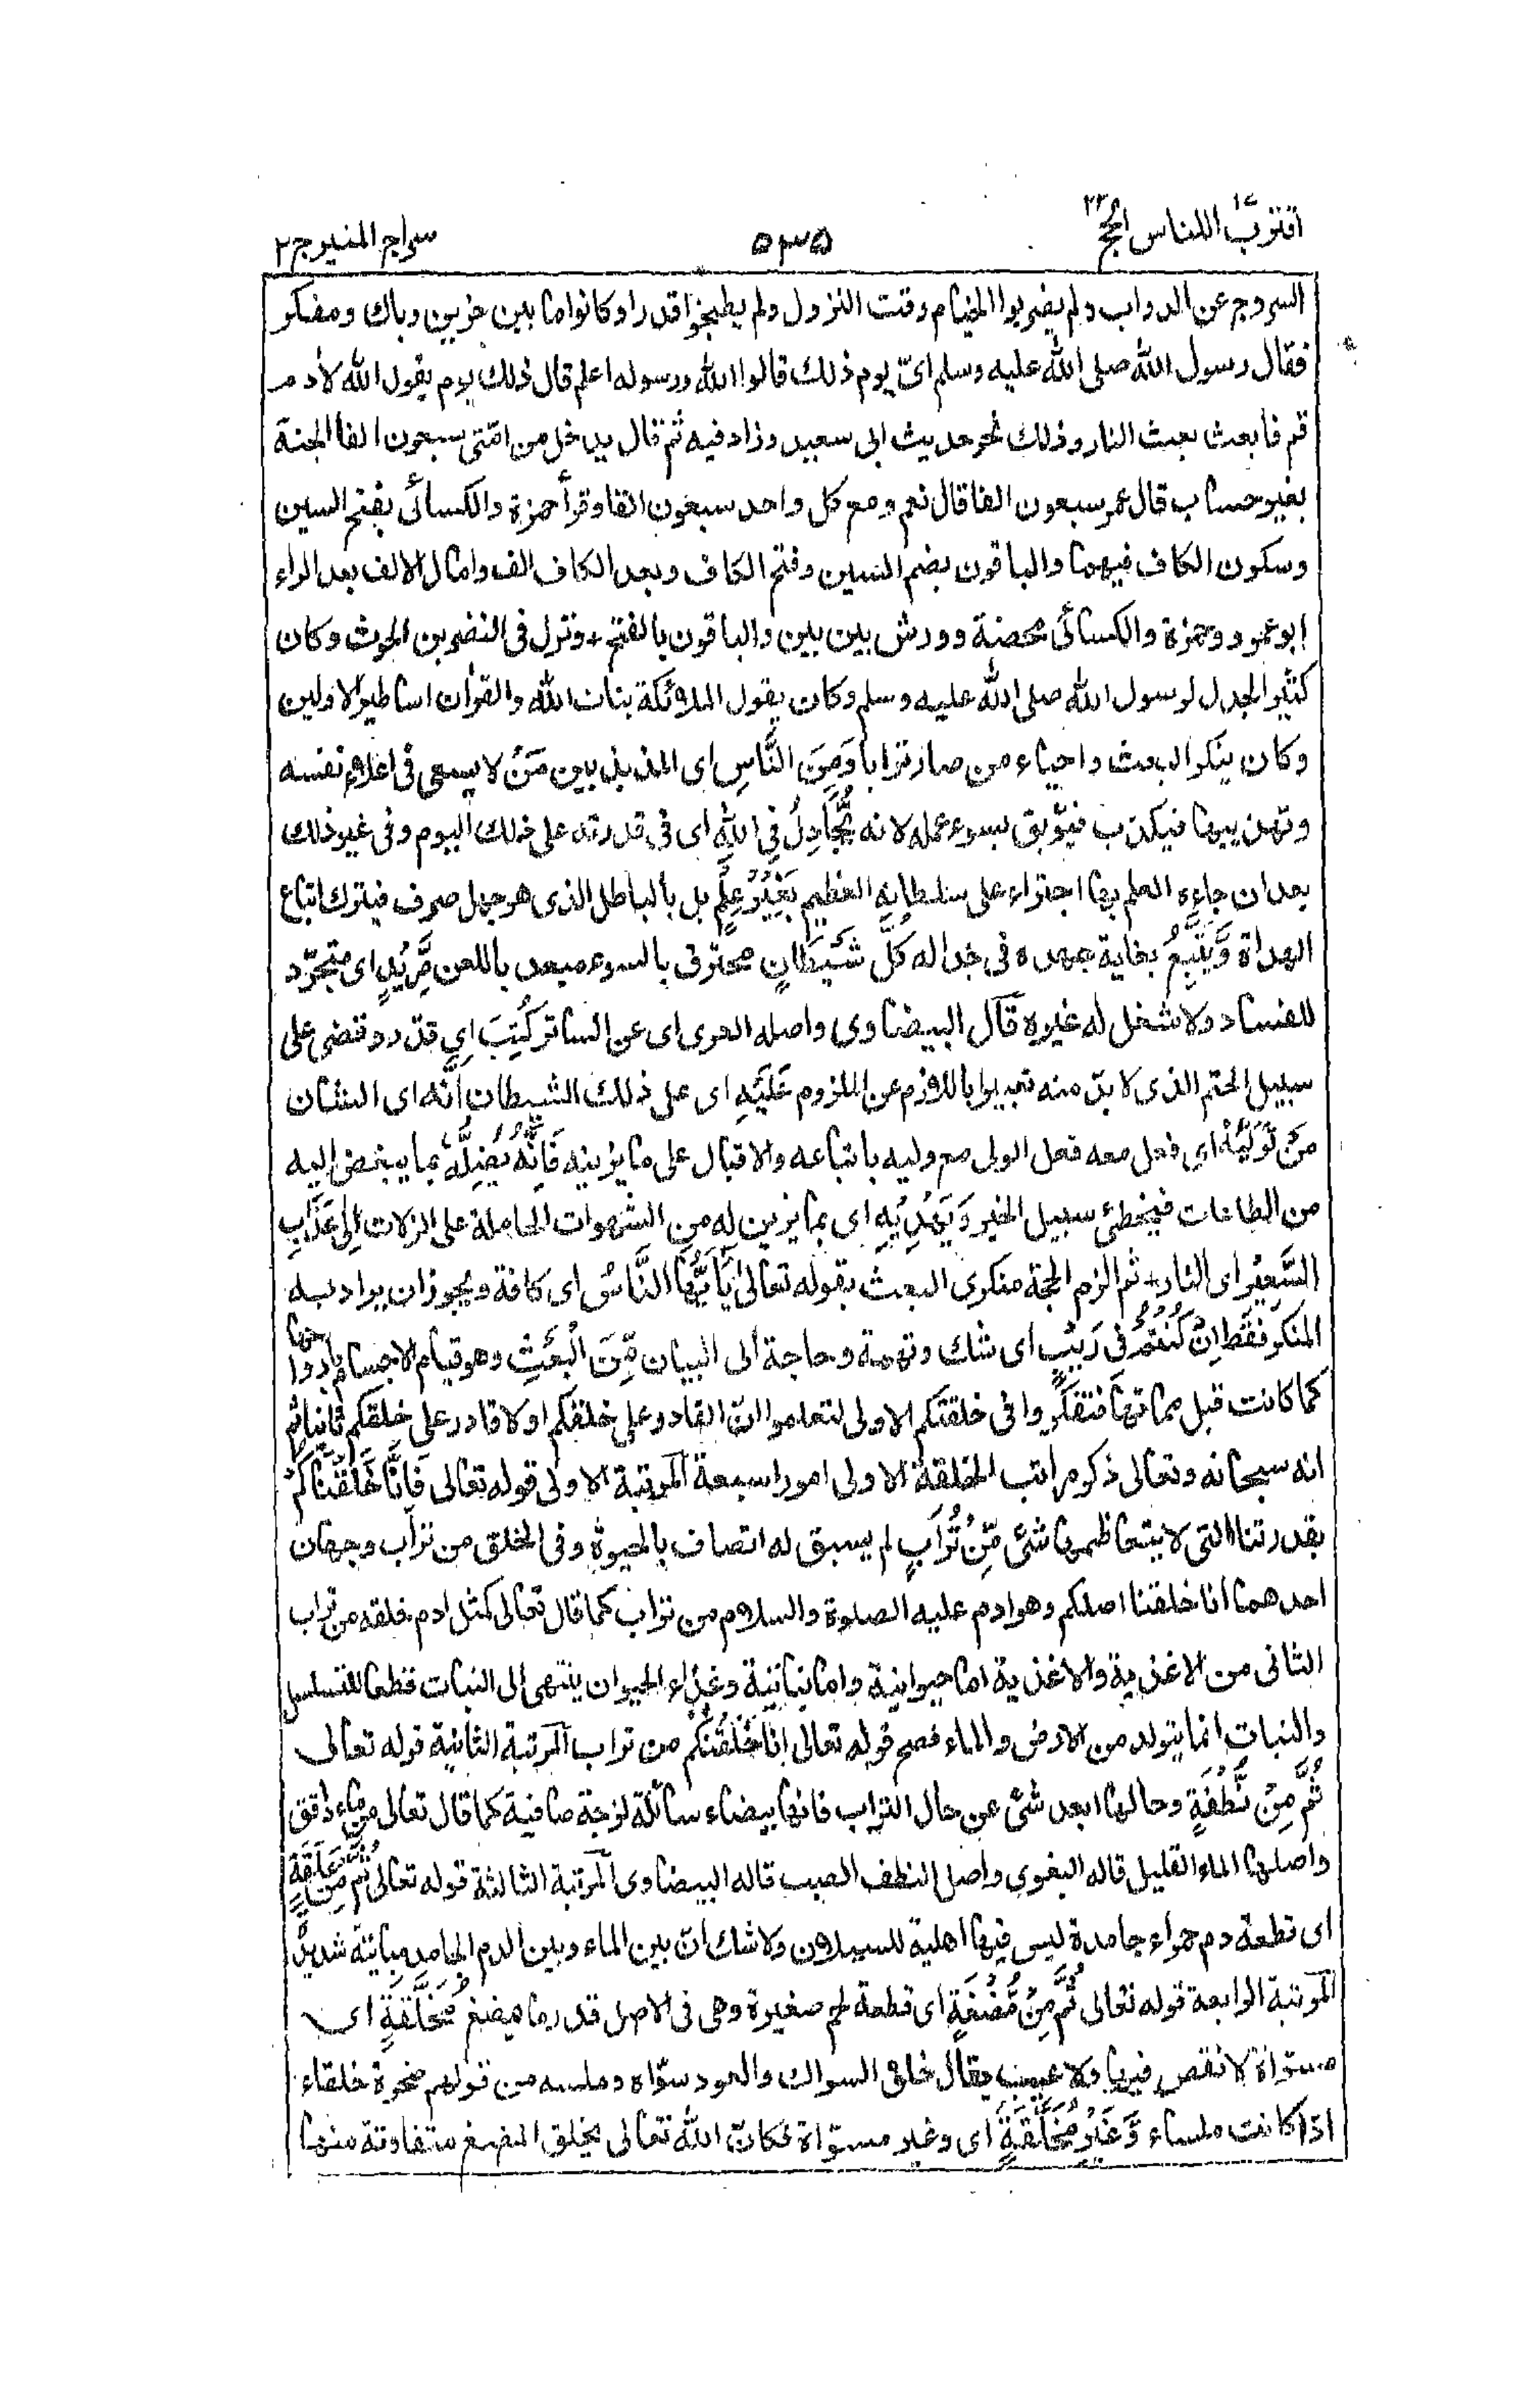 اقترب للناس ١٧ الحج ٢٢
٥٣٥
سراج المنير ج ٢
السروج عن الدواب ولم يضربوا الخيام وقت النزول ولم يطبخوا قدرا وكانوا ما بين حزين وباك ومفكر
فقال رسول الله صلى الله عليه وسلم اىّ يوم ذلك قالوا الله ورسوله اعلم قال ذلك يوم يقول الله لأدم
قم فابعث بعث النار وذلك نحو حديث ابى سعيد وزاد فيه ثم قال يدخل من امّتى سبعون الفا الجنة
بغير حساب قال عمر سبعون الفا قال نعم ومع كل واحد سبعون الفا وقرأ حمزة والكسائى بفتح السين
وسكون الكاف فيهما والباقون بضم السين وفتح الكاف وبعد الكاف الف وامال الالف بعد الراء
ابو عمرو وحمزة والكسائى محضة وورش بين بين والباقون بالفتح + ونزل فى النضر بن الحرث وكان
كثير الجدل لرسول الله صلى الله عليه وسلم وكان يقول الملائكة بنات الله والقرأن اساطير الاولين
وكان ينكر البعث واحياء من صار ترابا وَمِنَ النَّاسِ اى المذبذبين مَنْ لا يسعى فى اعلاء نفسه
وتهذيبها فيكذب فيؤبق بسوء عمله لانه يُّجَادِلُ فِى اللهِ اى فى قدرته على ذلك اليوم وفى غير ذلك
بعد ان جاءه العلم بها اجتراء على سلطانه العظيم بِغَيْرِ عِلْمٍ بل بالباطل الذى هو جهل صرف فيترك اتباع
الهداة وَّيَتَّبِعُ بغاية جهده فى جداله كُلَّ شَيْطَانٍ محترق بالسوء مبعد باللعن مَّرِيْدٍ اى متجرّد
للفساد ولا شغل له غيره قال البيضاوى واصله العرى اى عن الساتر كُتِبَ اى قدّر وقضى على
سبيل الحتم الذى لا بدّ منه تعبيرا باللازم عن الملزوم عَلَيْهِ اى على ذلك الشيطان اَنَّهٗ اى الشان
مَنْ تَوَلَّاهُ اى فعل معه فعل الولى مع وليه باتباعه والاقبال على ما يزينه فَاَنَّهٗ يُضِلُّهٗ بما يبغض اليه
من الطاعات فيخطئ سبيل الخير وَيَهْدِيْهِ اى بما يزين له من الشهوات الحاملة على الزلات اِلٰى عَذَابِ
السَّعِيْرِ اى النار + ثم الزم الحجة منكرى البعث بقوله تعالى يٰاَيُّهَا النَّاسُ اى كافة ويجوز ان يراد به
المنكر فقط اِنْ كُنْتُمْ فِى رَيْبٍ اى شك وتهمة وحاجة الى البيان مِّنَ الْبَعْثِ وهو قيام الاجسام بارواحها
كما كانت قبل مماتها فتفكروا فى خلقتكم الاولى لتعلموا انّ القادر على خلقكم اولا قادر على خلقكم ثانيا ثم
انه سبحانه وتعالى ذكر مراتب الخلقة الاولى امورا سبعة المرتبة الاولى قوله تعالى فَاِنَّا خَلَقْنَاكُمْ
بقدرتنا التى لا يتعاظمها شئ مِّنْ تُرَابٍ لم يسبق له اتصاف بالحيوة وفى الخلق من تراب وجهان
احدهما انا خلقنا اصلكم وهو ادم عليه الصلوة والسلام من تراب كما قال تعالى كمثل ادم خلقه من تراب
الثانى من الاغذية والاغذية اما حيوانية واما نباتية وغذاء الحيوان ينتهى الى النبات قطعا للتسلسل
والنبات انما يتولد من الارض والماء فصح قوله تعالى انا خَلَقْنٰكُمْ من تراب المرتبة الثانية قوله تعالى
ثُمَّ مِنْ نُّطْفَةٍ وحالها ابعد شئ عن حال التراب فانها بيضاء سائلة لزجة صافية كما قال تعالى من ماء دافق
واصلها الماء القليل قاله البغوى واصل النطف الصب قاله البيضاوى المرتبة الثالثة قوله تعالى ثُمَّ مِنْ عَلَقَةٍ
اى قطعة دم حمراء جامدة ليس فيها اهلية للسيلان ولا شك انّ بين الماء وبين الدم الجامد مباينة شديدة
المرتبة الرابعة قوله تعالى ثُمَّ مِنْ مُّضْغَةٍ اى قطعة لحم صغيرة وهى فى الاصل قدر ما يمضغ مُّخَلَّقَةٍ اى
مسوّاة لا نقص فيها ولا عيب يقال خلق السواك والعود سوّاه وملسه من قولهم صخرة خلقاء
اذا كانت ملساء وَّغَيْرِ مُخَلَّقَةٍ اى وغير مسوّاة فكانّ الله تعالى يخلق المضغ متفاوتة منها